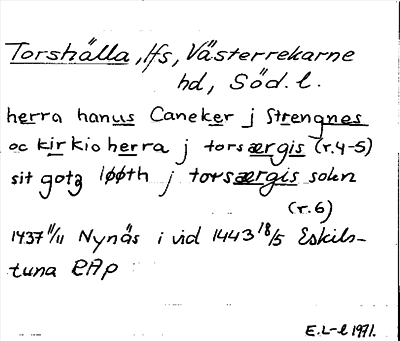 Torshälla, lfs, Västerrekarne
hd, Söd. l.
herra hanus Caneker j Strengnes
oc kirkioherra j torsærgis (r.4-5)
sit gotz løøth j torsærgis soken
(r.6)
1437 11/11 Nynäs i vid 1443 18/5 Eskils-
tuna RAp
E.L-l 1991.